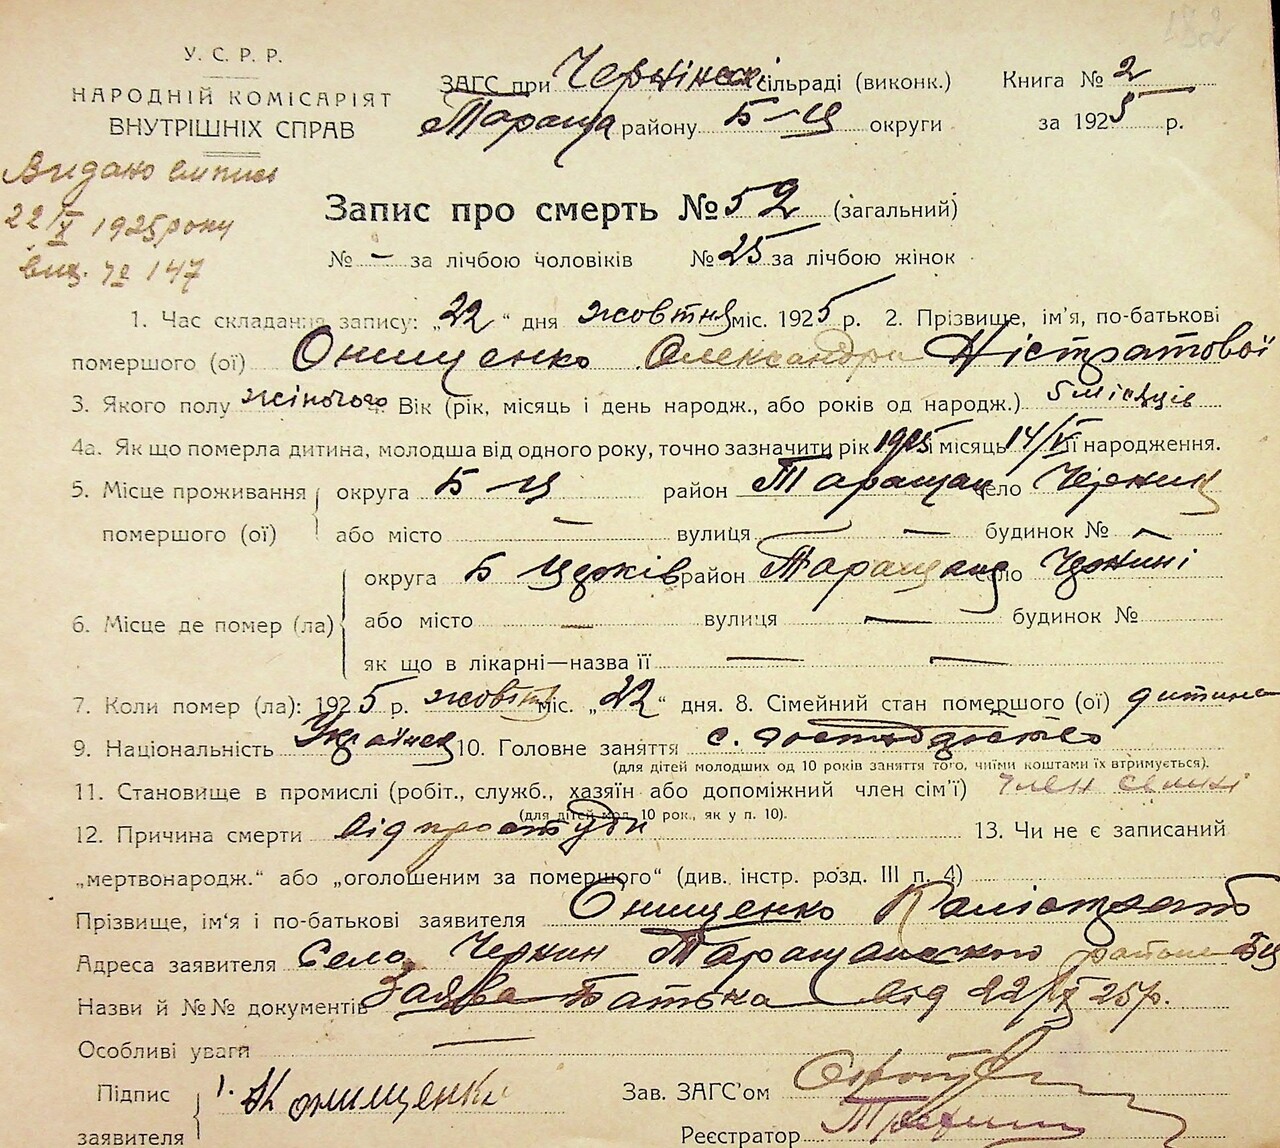 У. С. Р. Р.
НАРОДНІЙ КОМІСАРІЯТ
ВНУТРІШНІХ СПРАВ
ЗАГС при сільраді (виконк.) Книга № 2
Тараща району Б-Ц округи за 1925 р.
Видано
22/X 1925 року
147
Запис про смерть № 52 (загальний)
№ - за лічбою чоловіків № 25 за лічбою жінок
1. Час складання запису: „22“ дня жовтня міс. 1925 р. 2. Прізвище, ім'я, по-батькові
помершого (ої) Онищенко Олександри
3. Якого полу жіночого Вік (рік, місяць і день народж., або років од народж.) 5 місяців
4а. Як що померла дитина, молодша від одного року, точно зазначити рік 1925 і місяць 14/V її народження.
5. Місце проживання помершого (ої) округа Б-Ц район село Черкин
або місто — вулиця — будинок № —
6. Місце де помер (ла) округа Б район село
або місто — вулиця — будинок №
як що в лікарні—назва її — —
7. Коли помер (ла): 1925 р. жовтн міс. „22“ дня. 8. Сімейний стан помершого (ої) дитина
9. Національність 10. Головне заняття с.
(для дітей молодших од 10 років заняття того, чиїми коштами їх втримується).
11. Становище в промислі (робіт., служб., хазяїн або допоміжний член сім'ї) член сімї
(для дітей мол. 10 рок., як у п. 10).
12. Причина смерти від простуди 13. Чи не є записаний
„мертвонародж.“ або „оголошеним за помершого“ (див. інстр. розд. III п. 4)
Прізвище, ім'я і по-батькові заявителя Онищенко Калістрат
Адреса заявителя Село Черкин Таращанського району БЦ
Назви й №№ документів Заява Батька від 22/X 25 р.
Особливі уваги —
Підпис заявителя 1. К Онищенко
Зав. ЗАГС'ом
Реєстратор